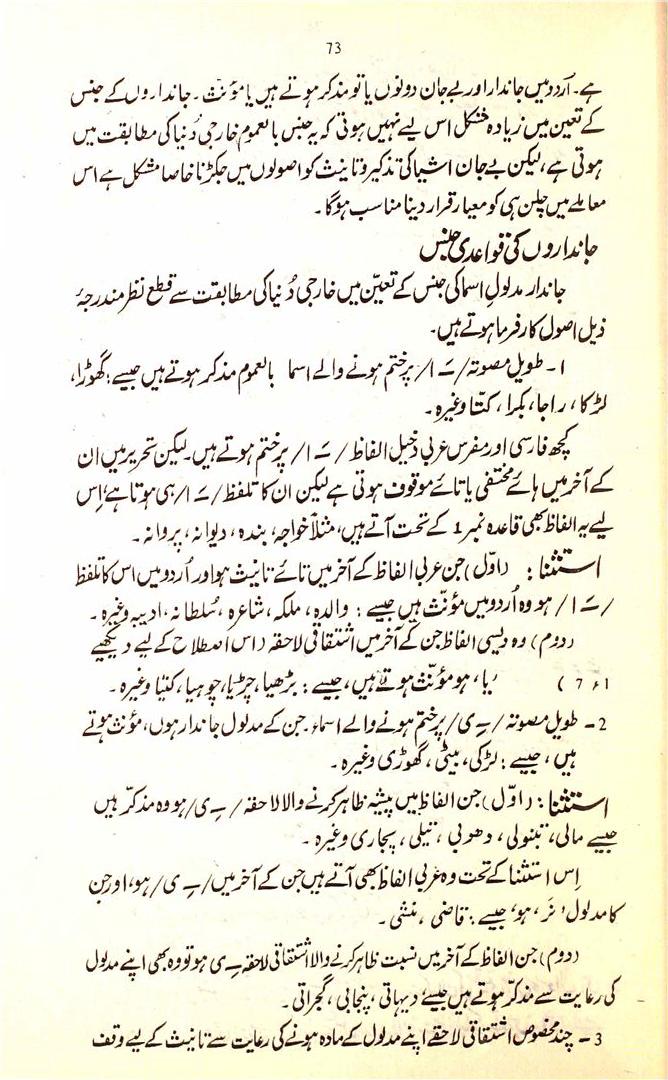 73
ہے۔ اُردو میں جاندار اور بے جان دونوں یا تو مذکر ہوتے ہیں یا مؤنّث۔ جانداروں کے جنس
کے تعین میں زیادہ مشکل اس لیے نہیں ہوتی کہ یہ جنس بالعموم خارجی دُنیا کی مطابقت میں
ہوتی ہے، لیکن بے جان اشیا کی تذکیر و تانیث کو اصولوں میں جکڑنا خاصا مشکل ہے اس
معاملے میں چلن ہی کو معیار قرار دینا مناسب ہوگا۔
جانداروں کی قواعدی جنس
جاندار مدلول اسما کی جنس کے تعیّن میں خارجی دُنیا کی مطابقت سے قطع نظر مندرجۂ
ذیل اصول کارفرما ہوتے ہیں۔
1۔ طویل مصوتہ /ـَ ا/ پر ختم ہونے والے اسما بالعموم مذکر ہوتے ہیں جیسے: گھوڑا،
لڑکا، راجا، بکرا، کتّا وغیرہ۔
کچھ فارسی اور مفرس عربی دخیل الفاظ /ـَ ا/ پر ختم ہوتے ہیں۔ لیکن تحریر میں ان
کے آخر میں ہائے مختفی یا تائے موقوف ہوتی ہے لیکن ان کا تلفظ /ـَ ا/ ہی ہوتا ہے، اِس
لیے یہ الفاظ بھی قاعدہ نمبر 1 کے تحت آتے ہیں، مثلاً خواجہ، بندہ، دیوانہ، پروانہ۔
استثنا: (اوّل) جن عربی الفاظ کے آخر میں تائے تانیث ہو اور اُردو میں اس کا تلفظ
/ـَ ا/ ہو وہ اُردو میں مؤنّث ہیں جیسے: والدہ، ملکہ، شاعرہ، سُلطانہ، ادیبہ وغیرہ۔
(دوم) وہ دیسی الفاظ جن کے آخر میں اشتقاقی لاحقہ (اس اصطلاح کے لیے دیکھیے
7ء1) ’یا‘ ہو مؤنّث ہوتے ہیں، جیسے: بڑھیا، چڑیا، چوہیا، کتیا وغیرہ۔
2۔ طویل مصوتہ /ـِ ی/ پر ختم ہونے والے اسماء۔ جن کے مدلول جاندار ہوں، مؤنث ہوتے
ہیں، جیسے: لڑکی، بیٹی، گھوڑی وغیرہ۔
استثنا: (اوّل) جن الفاظ میں پیشہ ظاہر کرنے والا لاحقہ /ـِ ی/ ہو وہ مذکّر ہیں
جیسے مالی، تنبولی، دھوبی، تیلی، پجاری وغیرہ۔
اِس استثنا کے تحت وہ عربی الفاظ بھی آتے ہیں جن کے آخر میں /ـِ ی/ ہو، اور جن
کا مدلول ’نَر‘ ہو، جیسے: قاضی، منشی۔
(دوم) جن الفاظ کے آخر میں نسبت ظاہر کرنے والا اشتقاقی لاحقہ ـِ ی ہو تو وہ بھی اپنے مدلول
کی رعایت سے مذکّر ہوتے ہیں جیسے دیہاتی، پنجابی، گجراتی۔
3۔ چند مخصوص اشتقاقی لاحقے اپنے مدلول کے مادہ ہونے کی رعایت سے تانیث کے لیے وقف